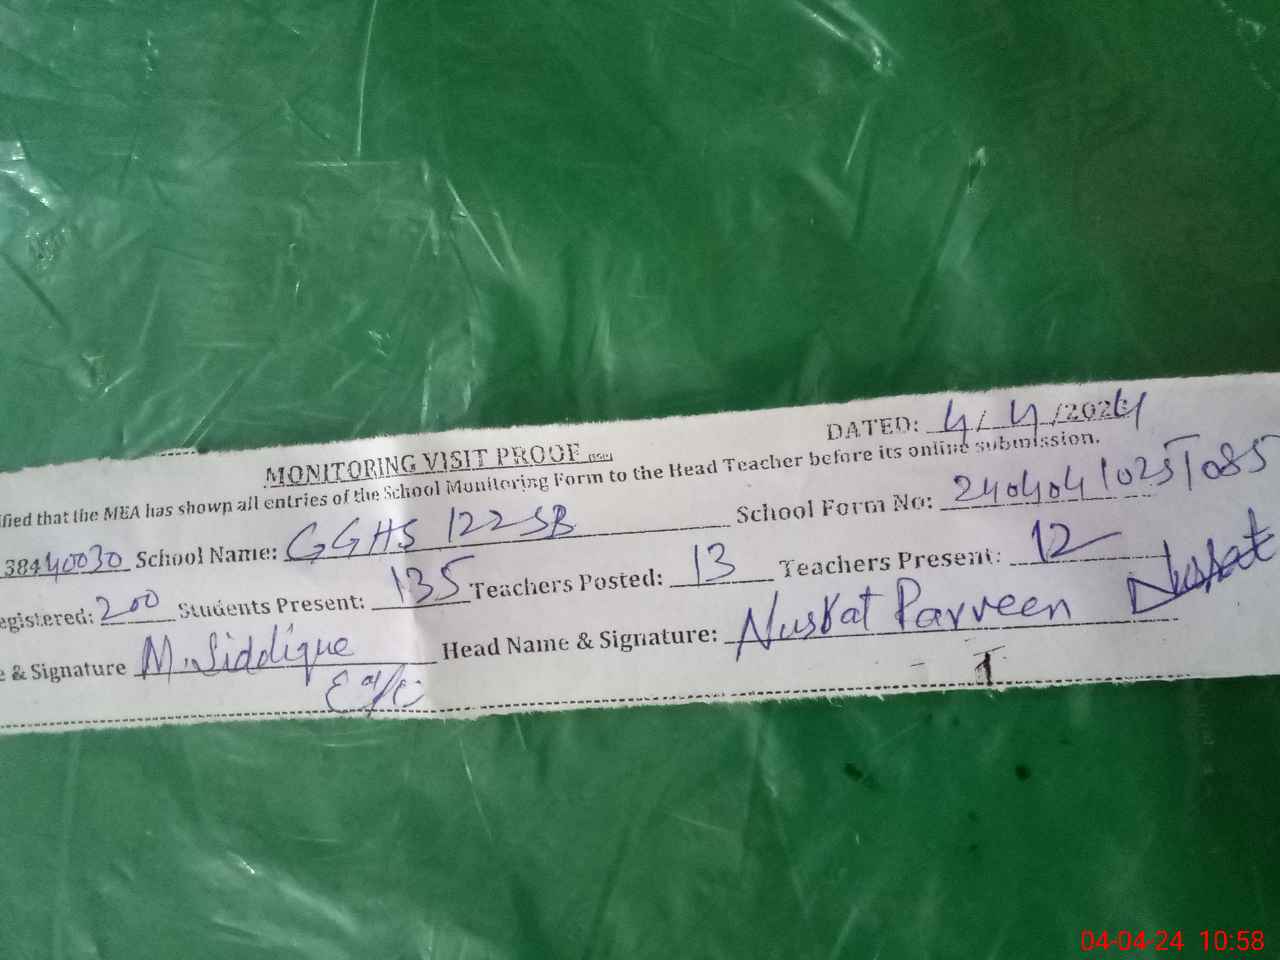 MONITORING VISIT PROOF
DATED: 4/4/2024
ified that the MEA has shown all entries of the School Monitoring Form to the Head Teacher before its online submission.
38440030 School Name: GGHS 122 SB School Form No:
egistered: 200 Students Present: 135 Teachers Posted: 13 Teachers Present: 12
e & Signature M. Siddique Head Name & Signature: Nusrat Parveen Nusrat
04-04-24 10:58